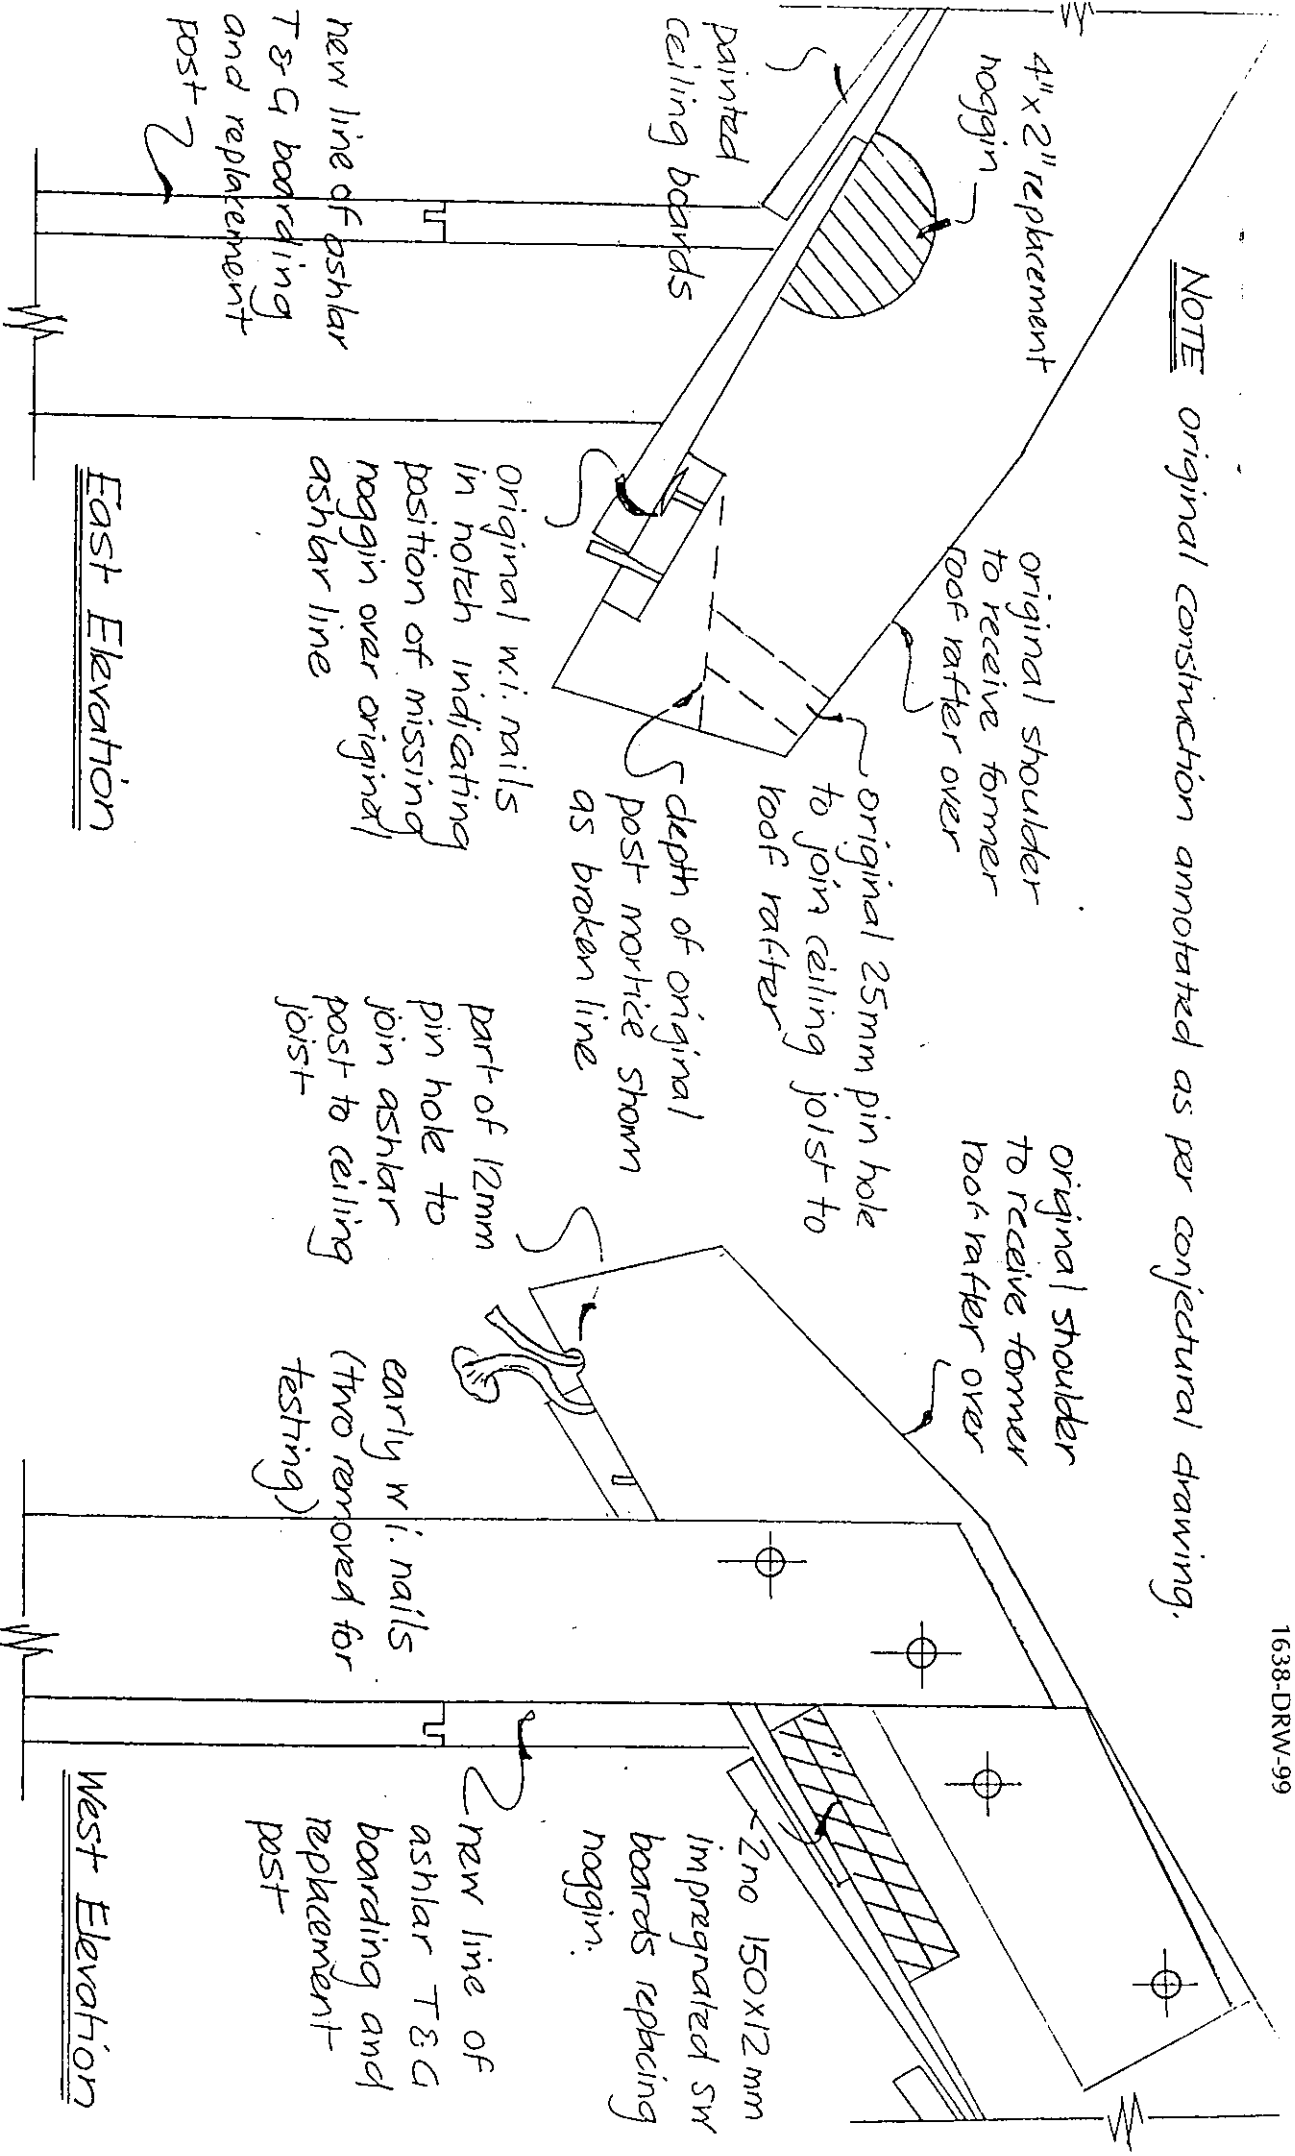 1638-DRW-99
NOTE original construction annotated as per conjectural drawing.
4"x2" replacement
noggin
painted
ceiling boards
new line of ashlar
T&G boarding
and replacement
post
original shoulder
to receive former
roof rafter over
original 25mm pin hole
to join ceiling joist to
roof rafter
depth of original
post mortice shown
as broken line
original w.i. nails
in notch indicating
position of missing
noggin over original
ashlar line
East Elevation
original shoulder
to receive former
roof rafter over
part of 12mm
pin hole to
join ashlar
post to ceiling
joist
early w.i. nails
(two removed for
testing)
2no 150x12mm
impregnated sw
boards replacing
noggin.
new line of
ashlar T&G
boarding and
replacement
post
West Elevation